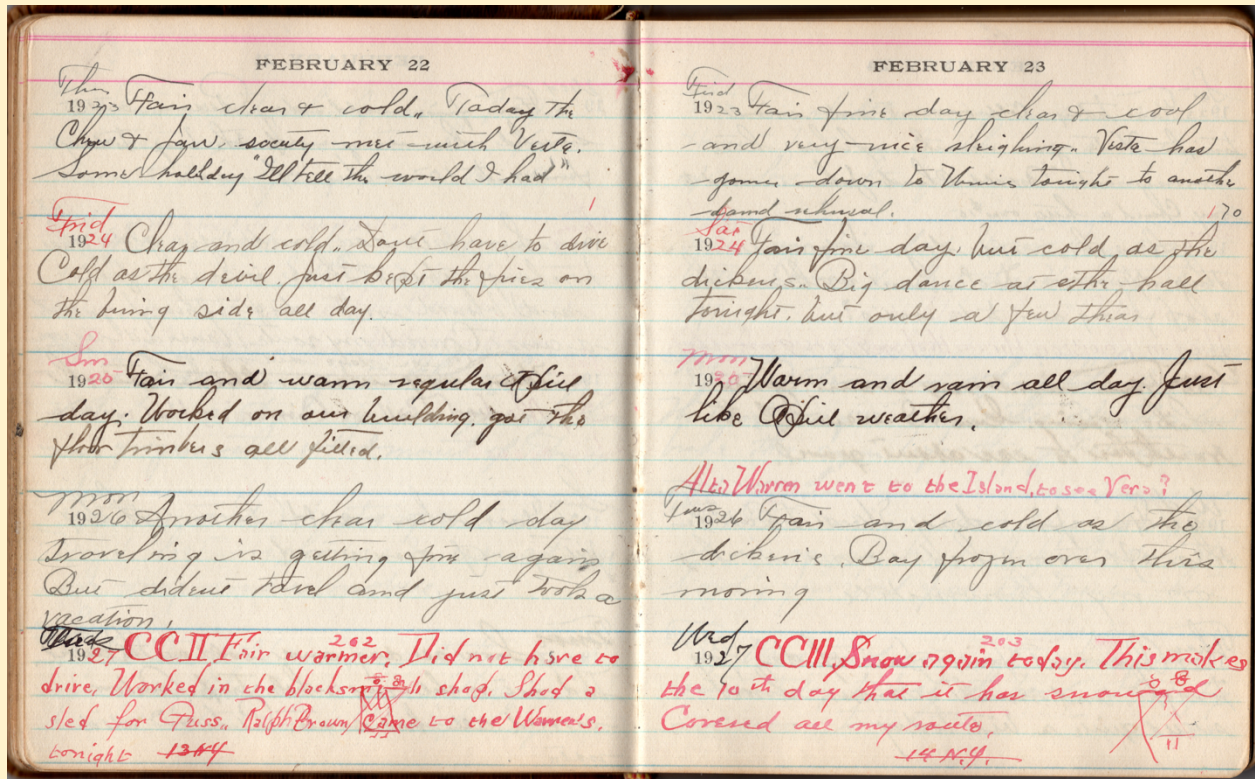 FEBRUARY 22
Thur
1923 Fair clear & cold.. Taday the
Chew & Jaw, society met with Veste.
Some holiday "I'll tell the world I had"
1
Frid
1924 Clear and cold.. Dont have to dive
Cold as the devil, just kept the fires on
the buing side all day.
Sun
1925 Fair and warm regular April
day. Worked on our building, got the
floor timbers all fitted.
Mon
1926 Another clear cold day
Traveling is getting fine again
But dident tavel and just took a
vacation.
1927 CCII, Fair warmer. Did not have to
202
drive. Worked in the blacksmith shop. Shod a
sled for Guss.. Ralph Brown came to the Warren's.
tonight 13 N.Y.
11
FEBRUARY 23
Frid
1923 Fair fine day clear & cool
and very nice sleighing.. Veste has
gone down to tonight to another
band rehursal.
170
Sat
1924 Fair fine day. but cold as the
dickens.. Big dance at the hall
tonight. but only a few thear
Mon
1925 Warm and rain all day. Just
like April weather.
Alta Warren went to the Island, to see Vera?
Tues
1926 Fair and cold as the
dickens. Bay frozen over this
morning
Wed
1927 CCIII, Snow again today. This makes
203
the 10th day that it has snowed
Covered all my route.
11
14 N.Y.